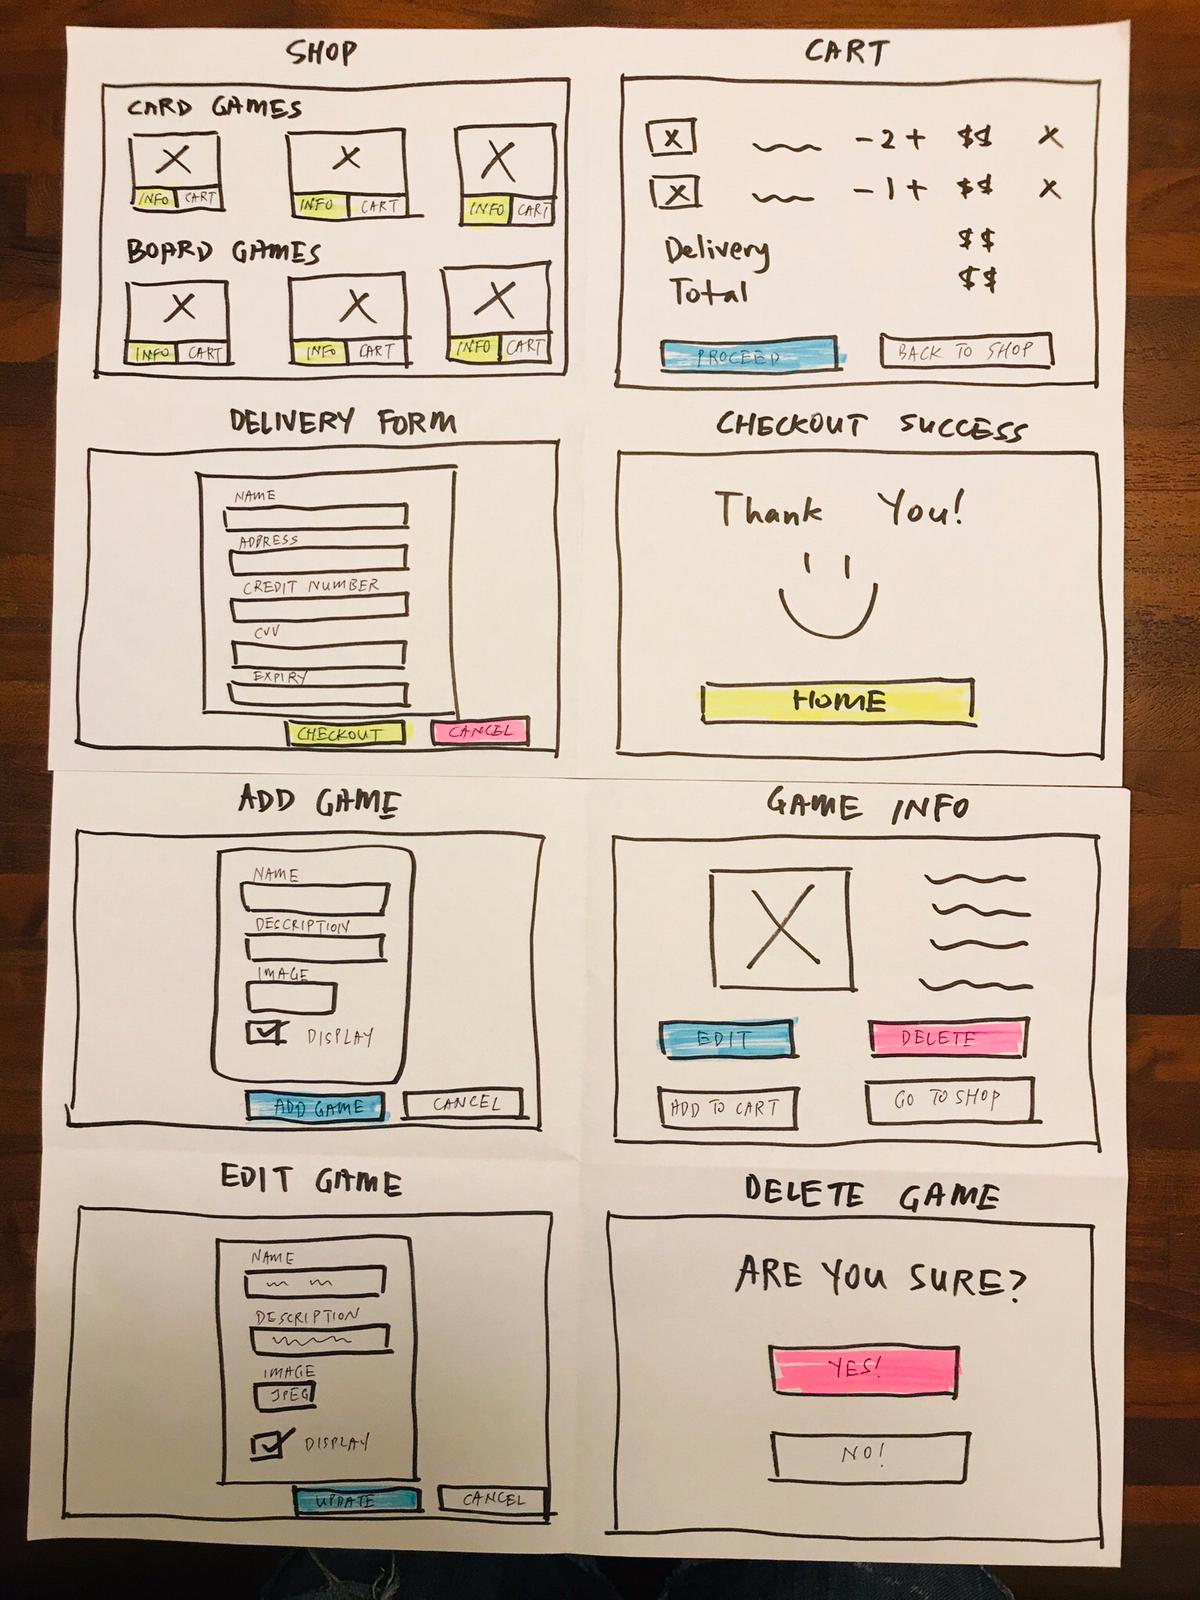 SHOP
CARD GAMES
INFO CART INFO CART INFO CART
BOARD GAMES
INFO CART INFO CART INFO CART
CART
X ~ - 2 + $$ X
X ~ - 1 + $$ X
Delivery $$
Total $$
PROCEED BACK TO SHOP
DELIVERY FORM
NAME
ADDRESS
CREDIT NUMBER
CVV
EXPIRY
CHECKOUT CANCEL
CHECKOUT SUCCESS
Thank You!
HOME
ADD GAME
NAME
DESCRIPTION
IMAGE
DISPLAY
ADD GAME CANCEL
GAME INFO
EDIT DELETE
ADD TO CART GO TO SHOP
EDIT GAME
NAME
DESCRIPTION
IMAGE
JPEG
DISPLAY
UPDATE CANCEL
DELETE GAME
ARE YOU SURE?
YES!
NO!